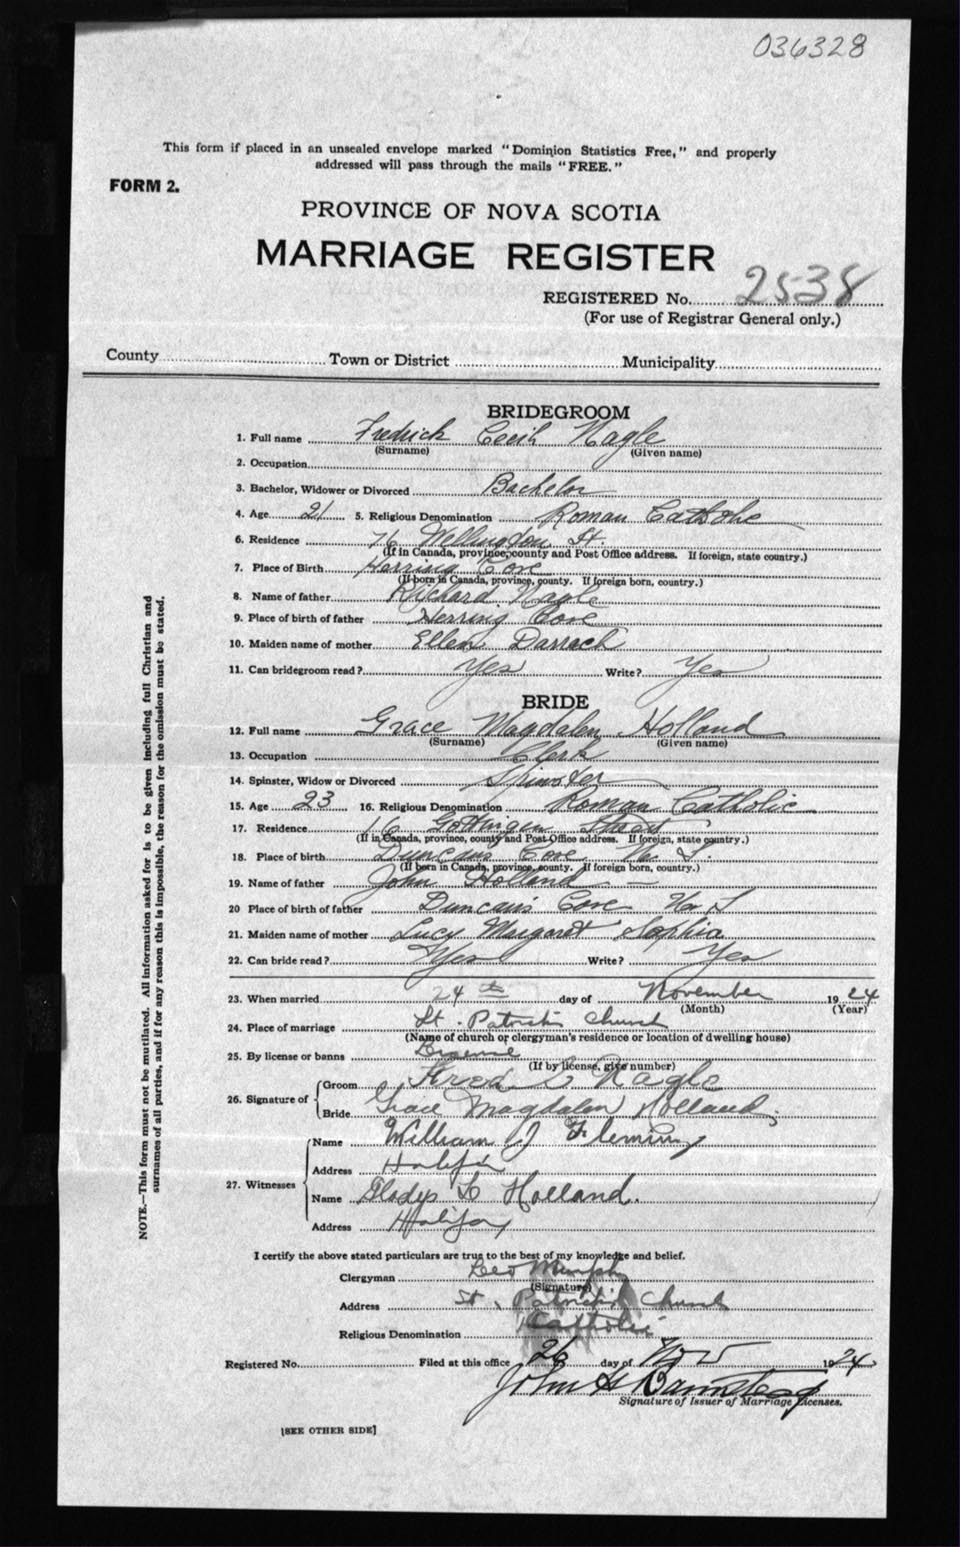 036328
This form if placed in an unsealed envelope marked "Dominion Statistics Free," and properly
addressed will pass through the mails "FREE."
FORM 2.
PROVINCE OF NOVA SCOTIA
MARRIAGE REGISTER
REGISTERED No. 2538
(For use of Registrar General only.)
County Town or District Municipality
BRIDEGROOM
1. Full name Fredrick Cecil Nagle
(Surname) (Given name)
2. Occupation
3. Bachelor, Widower or Divorced Bachelor
4. Age 21 5. Religious Denomination Roman Catholic
6. Residence 76 Wellington St.
(If in Canada, province, county and Post Office address. If foreign, state country.)
7. Place of Birth Herring Cove
(If born in Canada, province, county. If foreign born, country.)
8. Name of father Richard Nagle
9. Place of birth of father Herring Cove
10. Maiden name of mother Ellen Darrach
11. Can bridegroom read? Yes Write? Yes
BRIDE
12. Full name Grace Magdalen Holland
(Surname) (Given name)
13. Occupation Clerk
14. Spinster, Widow or Divorced Spinster
15. Age 23 16. Religious Denomination Roman Catholic
17. Residence 16 Gottingen Street
(If in Canada, province, county and Post Office address. If foreign, state country.)
18. Place of birth Duncans Cove N. S.
(If born in Canada, province, county. If foreign born, country.)
19. Name of father John Holland
20 Place of birth of father Duncan's Cove N S
21. Maiden name of mother Lucy Margaret Sophia
22. Can bride read? Yes Write? Yes
23. When married 24th day of November 1924
(Month) (Year)
24. Place of marriage St. Patrick's Church
(Name of church or clergyman's residence or location of dwelling house)
25. By license or banns
(If by license, give number)
26. Signature of Groom Fred C Nagle
Bride Grace Magdalen Holland
27. Witnesses Name William J Fleming
Address Halifax
Name Gladys L Holland.
Address Halifax
I certify the above stated particulars are true to the best of my knowledge and belief.
Clergyman Leo Murphy
(Signature)
Address St. Patrick's Church
Religious Denomination Catholic
Registered No. Filed at this office 26 day of Nov 1924
John H Barnstead
Signature of Issuer of Marriage Licenses.
[SEE OTHER SIDE]
NOTE.—This form must not be mutilated. All information asked for is to be given including full Christian and
surnames of all parties, and if for any reason this is impossible, the reason for the omission must be stated.